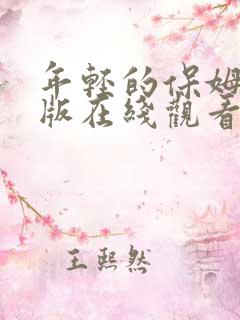 年轻的保姆
版在线觀看
王熙然